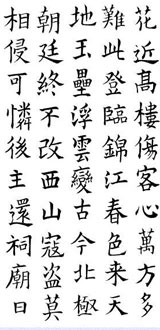 花近髙樓傷客心萬方多
難此登臨錦江春色来天
地玉壘浮雲變古今北極
朝廷終不改西山寇盗莫
相侵可憐後主還祠廟日